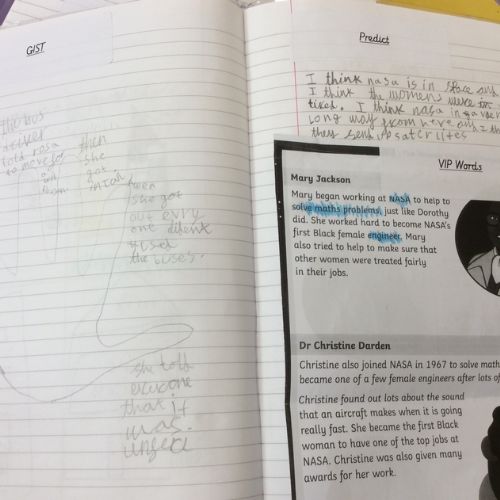 GIST
the bus
driver
told rosa
to move for
then
she
got
then
she got
out evry
one dihent
the buses.
she told
evryone
that it
was
unfeci
Predict
I think nasa is in space and
I think the womens were
tired. I think nasa in a ver
long way from here and I
they send
VIP Words
Mary Jackson
Mary began working at NASA to help to
solve maths problems, just like Dorothy
did. She worked hard to become NASA's
first Black female engineer. Mary
also tried to help to make sure that
other women were treated fairly
in their jobs.
Dr Christine Darden
Christine also joined NASA in 1967 to solve math
became one of a few female engineers after lots of
Christine found out lots about the sound
that an aircraft makes when it is going
really fast. She became the first Black
woman to have one of the top jobs at
NASA. Christine was also given many
awards for her work.